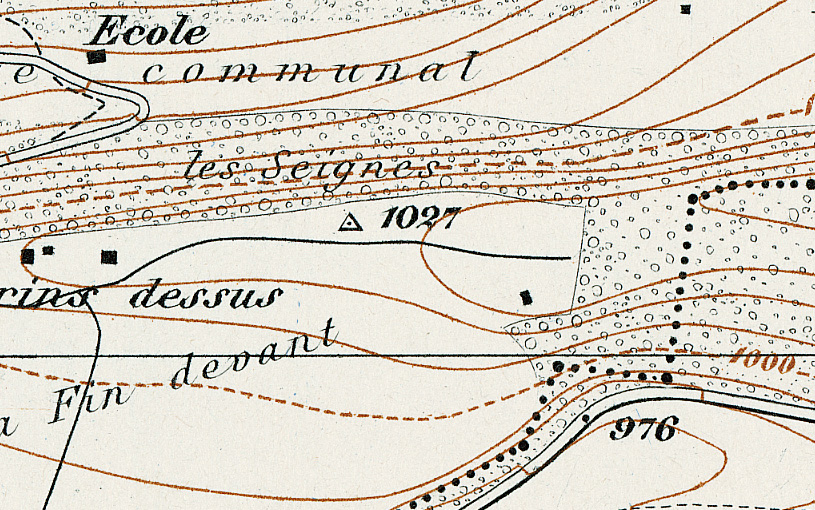 Ecole
e communal
les Seignes
1027
rins dessus
a Fin devant
1000
976